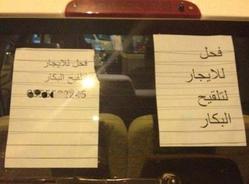 فحل للايجار
لتلقيح البكار
فحل
للايجار
لتلقيح
البكار